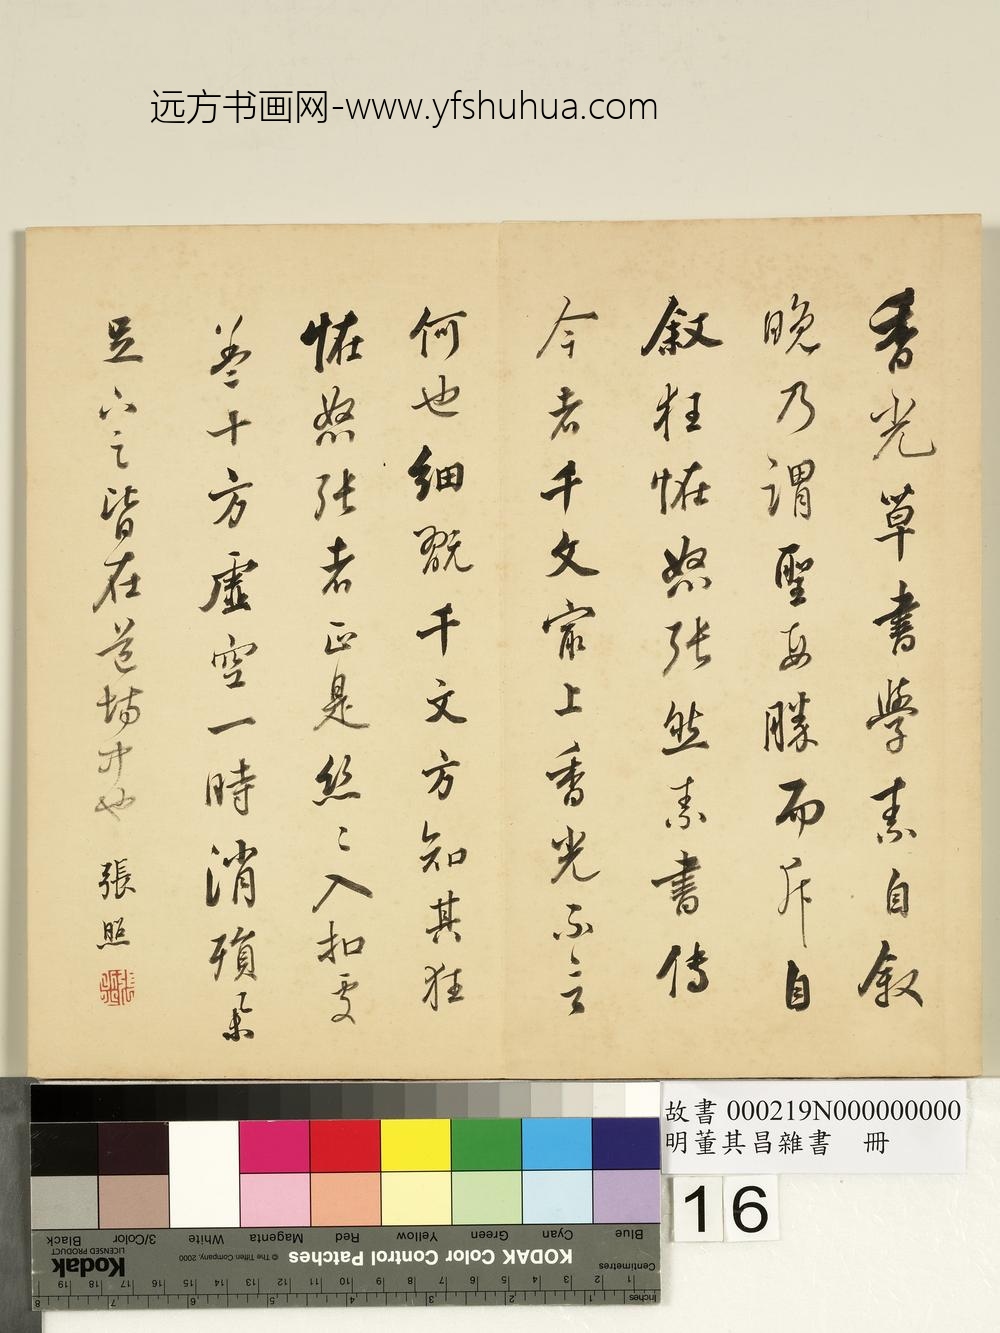 远方书画网-www.yfshuhua.com
香光草書學素自叙
晚乃謂聖母勝而斥自
叙狂怪怒張然素書傳
今者千文最上香光不言
何也細翫千文方知其狂
怪怒張者正是絲〻入扣處
等十方虛空一時消殞
足下之皆在道場中也
張照
故書 000219N000000000
明董其昌雜書 冊
16
KODAK Color Control Patches
Kodak
LICENSED PRODUCT
© The Tiffen Company, 2000
Blue Cyan Green Yellow Red Magenta White 3/Color Black
Centimetres
Inches